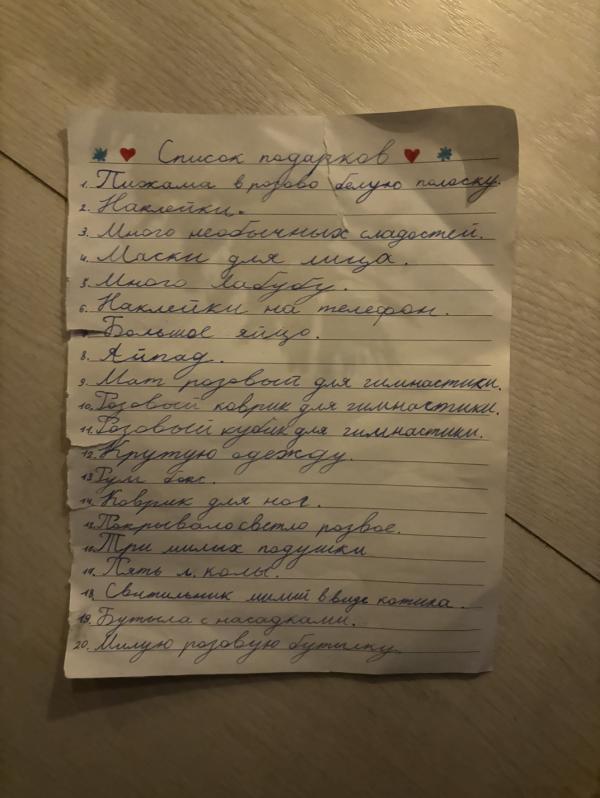 Список подарков
1. Пижама в розово белую полоску.
2. Наклейки.
3. Много необычных сладостей.
4. Маски для лица.
5. Много лабубу.
6. Наклейки на телефон.
7. Большое яйцо.
8. Айпад.
9. Мат розовый для гимнастики.
10. Розовый коврик для гимнастики.
11. Розовый кубик для гимнастики.
12. Крутую одежду.
13. Рум бокс.
14. Коврик для ног.
15. Покрывало светло розвое.
16. Три милых подушки
17. Пять л. колы.
18. Свитильник милий в виде котика.
19. Бутыла с насадками.
20. Милую розовую бутылку.